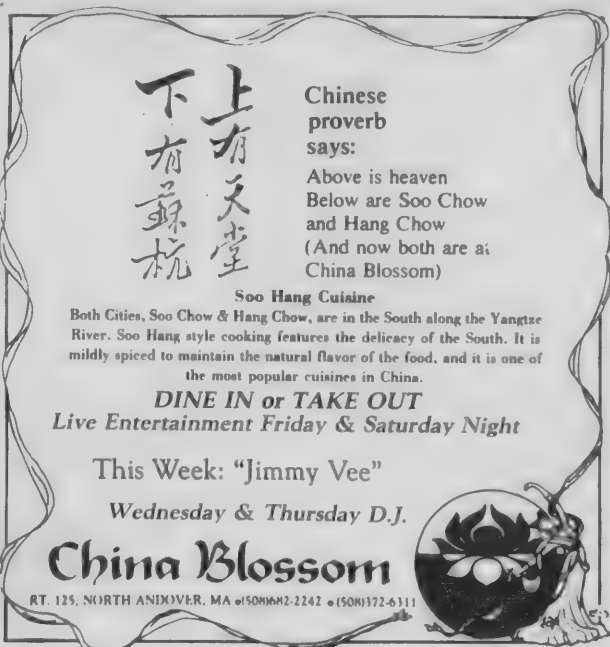 上有天堂
下有蘇杭
Chinese
proverb
says:
Above is heaven
Below are Soo Chow
and Hang Chow
(And now both are at
China Blossom)
Soo Hang Cuisine
Both Cities, Soo Chow & Hang Chow, are in the South along the Yangtze
River. Soo Hang style cooking features the delicacy of the South. It is
mildly spiced to maintain the natural flavor of the food, and it is one of
the most popular cuisines in China.
DINE IN or TAKE OUT
Live Entertainment Friday & Saturday Night
This Week: "Jimmy Vee"
Wednesday & Thursday D.J.
China Blossom
RT. 125, NORTH ANDOVER, MA •(508)682-2242 •(508)372-6311